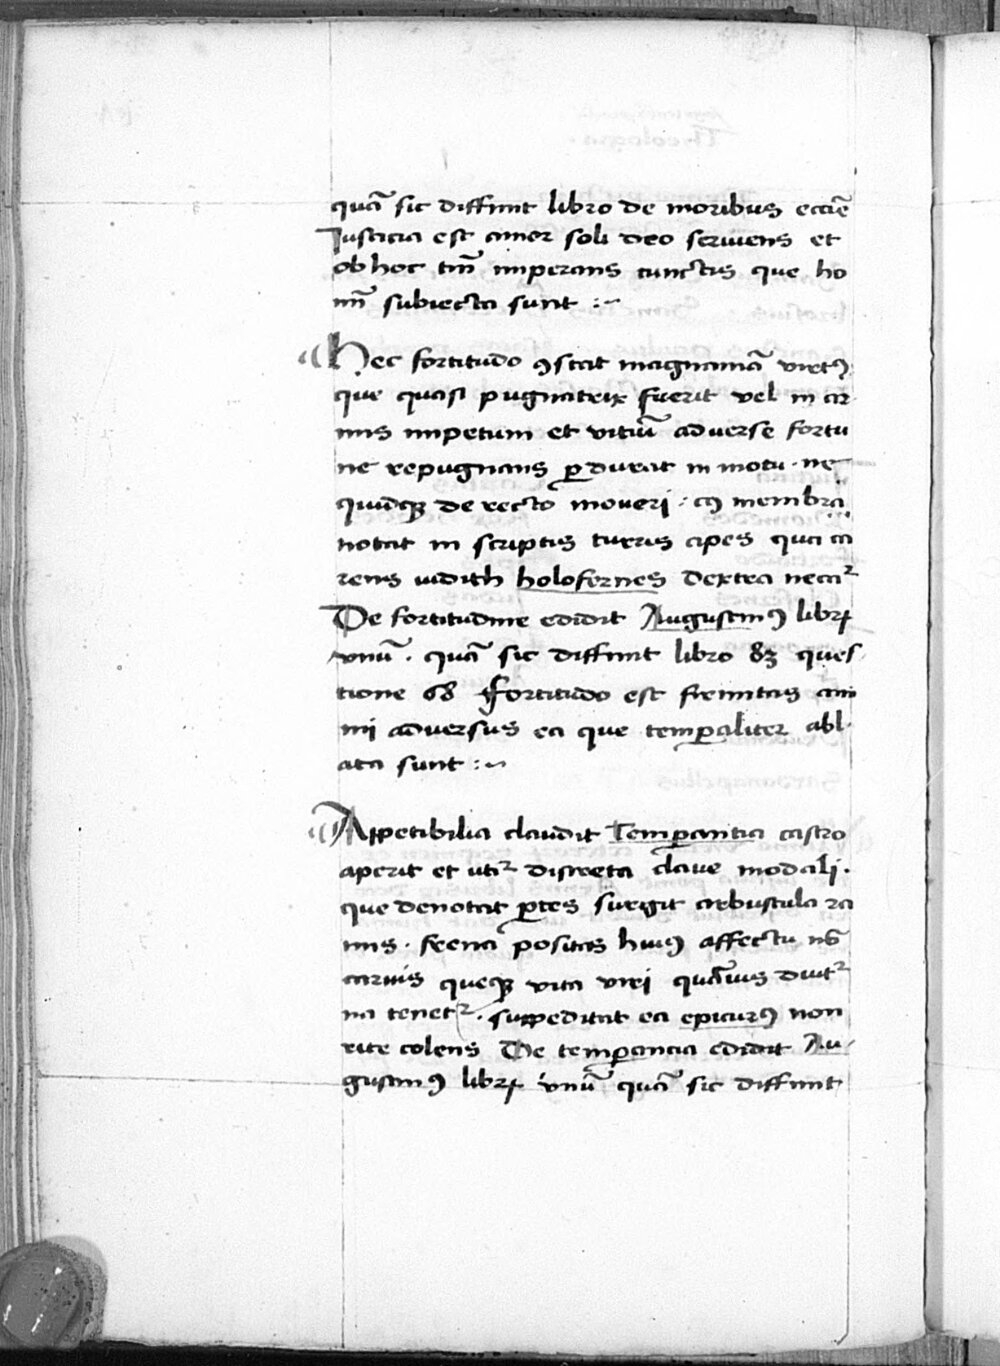 quā sic diffinit libro de moribus eccīe
Iusticia est amor soli deo serviens et
ob hoc tm̄ imperans cunctis que ho
mī subiecta sunt :~
Hec fortitudo ꝯstat magnanīa virtꝰ
que quasi pugnatrix fuerit vel in ar
mis impetum et vitiū adverse fortu
ne repugnans ꝑdurat in motu . ne
quidqꝫ de recto moveri : cꝰ membra
notat in scriptis turris apes qua ca
rens iudith holofernes dextra necaꝛ̉
De fortitudine edidit Augustinꝰ libꝝ
vnū . quā sic diffinit libro 83 ques
tione 68 Fortitudo est firmitas ani
mi adversus ea que temꝑaliter abl
ata sunt :~
Appetibilia claudit Temꝑantia castro
aperit et utiꝛ̉ discreta clave modali .
que denotat ꝑtes surgit arbustula ra
mis . frena positas huiꝰ affectu
carnis queqꝫ vita viri quāvis
na tenetꝛ̉ . suppeditat ea epicurꝰ non
rite colens De temꝑancia edidit Au
gustinꝰ libꝝ vnū quā sic diffinit